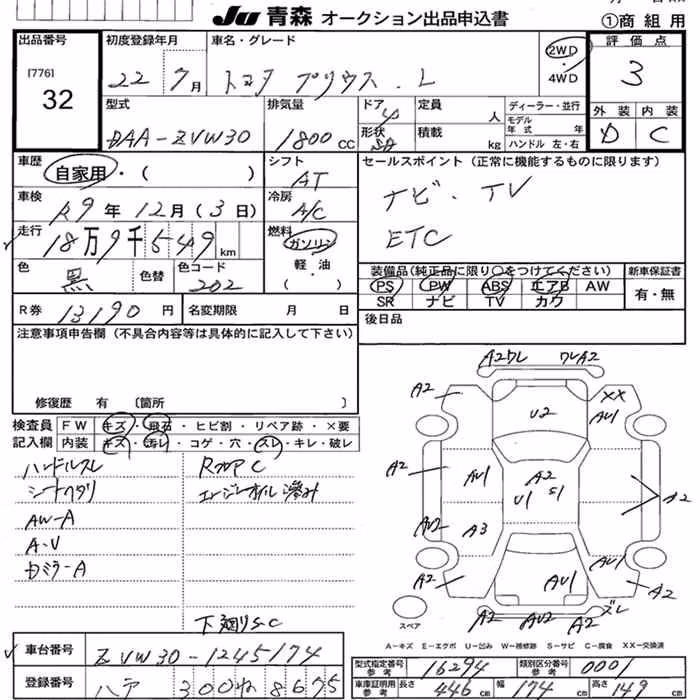 Ju 青森 オークション出品申込書
①商 組 用
出品番号
[776]
32
初度登録年月
22年 7月
車名・グレード
トヨタ プリウス . L
2WD
・
4WD
評価点
3
型式
DAA-ZVW30
排気量
1800 CC
ドア
4
形状
5D
定員
人
積載
kg
ディーラー・並行
モデル
年式 年
ハンドル 左・右
外装
D
内装
C
車歴
自家用・( )
シフト
AT
セールスポイント(正常に機能するものに限ります)
ナビ . TV
ETC
車検
R9年 12月 (3日)
冷房
A/C
走行
18万9千549 km
燃料
ガソリン
軽・油
( )
色
黒
色替
色コード
202
装備品(純正品に限り○をつけてください)
PS PW ABS エアB AW
SR ナビ TV カワ
新車保証書
有・無
R券 13190円
名変期限 月 日
後日品
注意事項申告欄(不具合内容等は具体的に記入して下さい)
修復歴 有 〔箇所 〕
検査員
記入欄
FW キズ・飛石・ヒビ割・リペア跡・×要
内装 キズ・汚れ・コゲ・穴・スレ・キレ・破レ
ハンドルスレ
シートヘタリ
AW-A
A-V
ドミラ-A
エンジンオイル滲み
下廻りS-C
A2ワレ ワレA2
A2
XX
AU1
U2
A2
AU1
A2
U1
S1
A2
AU2
A3
AU1
A2
AU1
A2
A2
AU2
A2
ズレ
スペア
A-キズ E-エクボ U-凹み W-補修跡 S-サビ C-腐食 XX-交換済
車台番号
ZVW30-1245174
登録番号
八戸 300 ね 8675
型式指定番号
参考
16294
類別区分番号
参考
0001
車庫証明用
参考
長さ 446 cm
幅 174 cm
高さ 149 cm